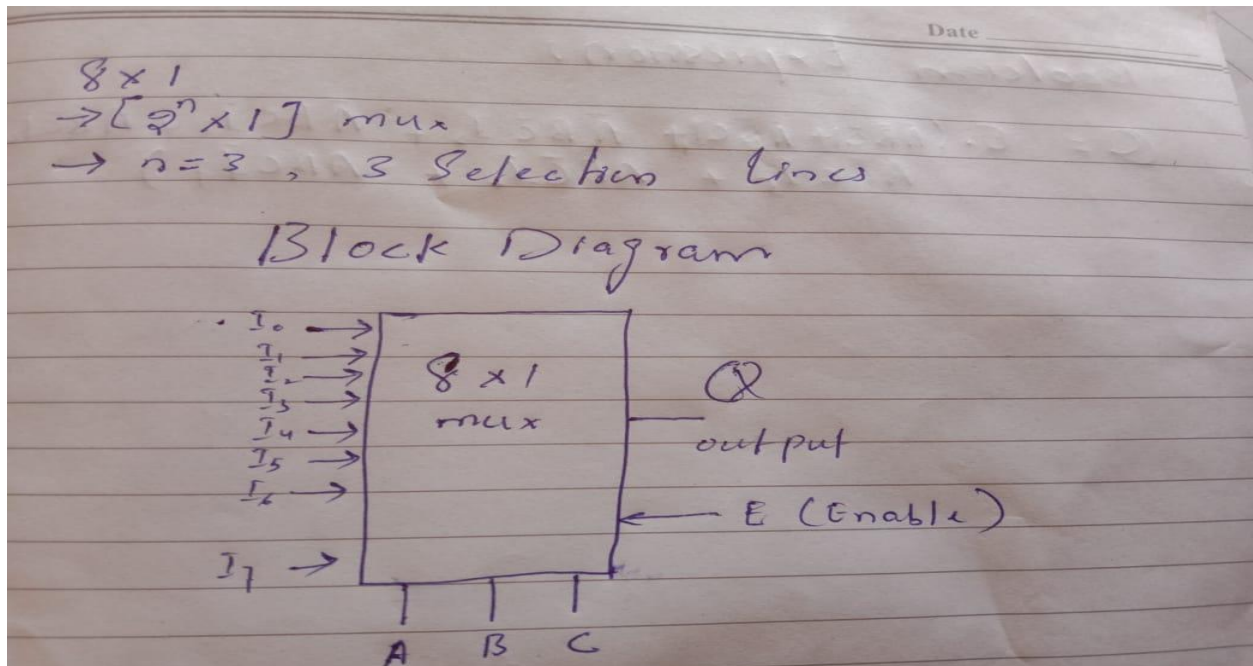 Date
8 x 1
→ [2ⁿ x 1] mux
→ n = 3, 3 Selection Lines
Block Diagram
I₀
I₁
I₂
I₃
I₄
I₅
I₆
I₇
8 x 1
mux
Q
output
E (Enable)
A B C